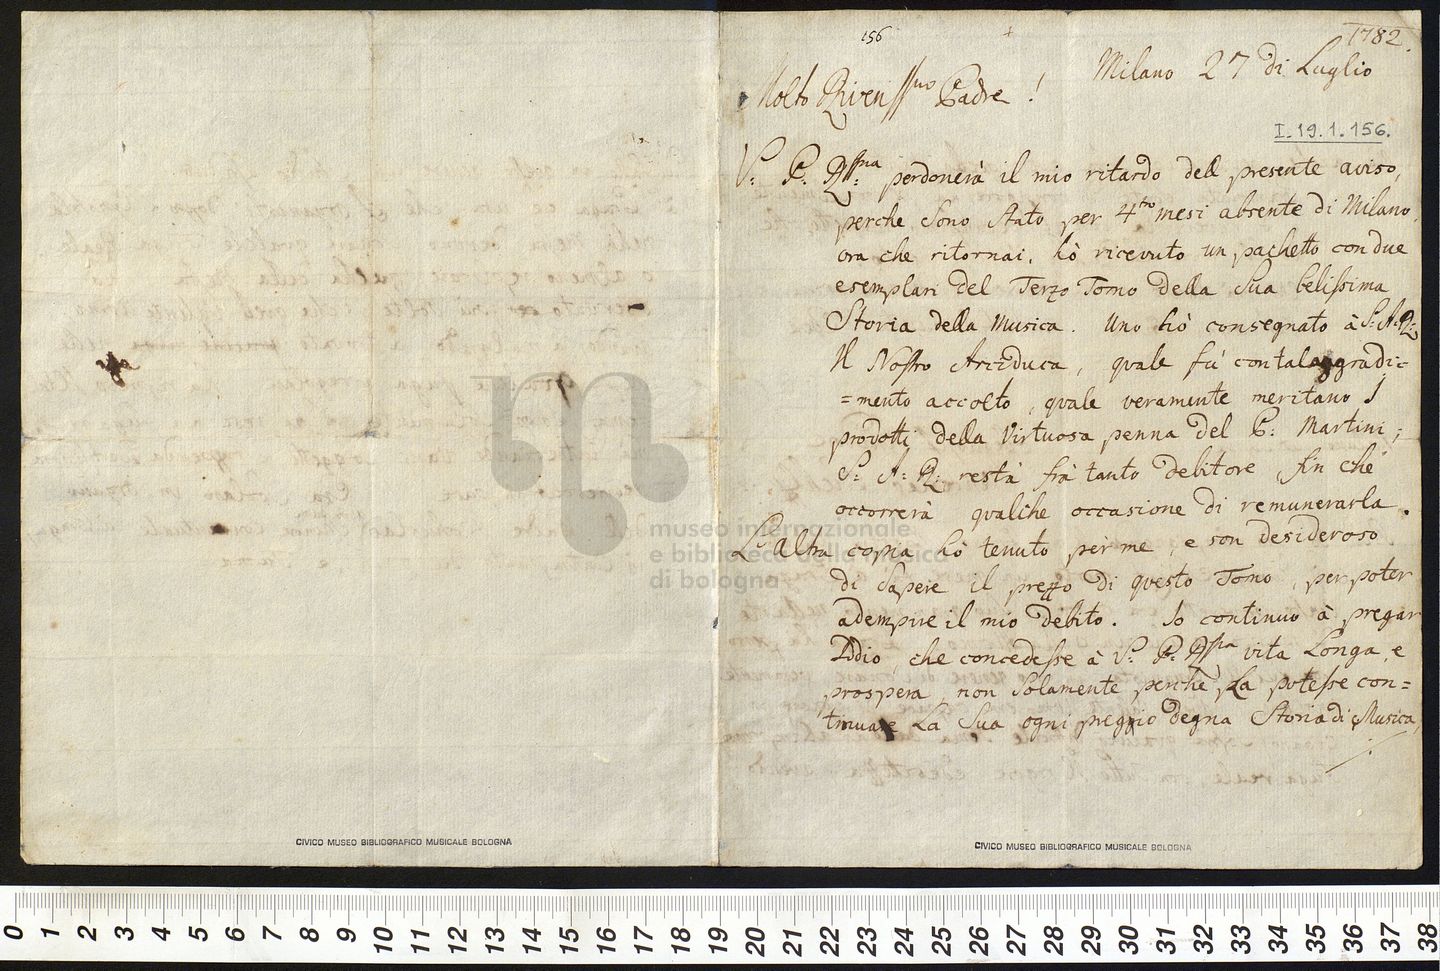 156
1782.
Milano 27 di Luglio
Molto Riveriss:mo Padre!
I.19.1.156.
V: P: R:ssma perdonerà il mio ritardo dell presente aviso,
perche sono stato per 4tro mesi absente di Milano,
ora che ritornai, hò ricevuto un pachetto con due
esemplari del Terzo Tomo della Sua belissima
Storia della Musica. Uno hò consegnato à S: A: R:
Il Nostro Arciduca, quale fú con tal aggradi=
=mento accolto, quale veramente meritano I
prodotti della Virtuosa penna del P: Martini;
S: A: R: restà frà tanto debitore fin chè
occorrerà qualche occasione di remunerarla.
L'altra copia hò tenuto pèr me, e son desideroso
di sapere il prezzo di questo Tomo, per poter
adempire il mio debito. Io continuo à pregar
Iddio, che concedesse à V: P: Rssma vita Longa, e
prospera, non solamente perchè La potesse con=
tinuare La Sua ogni preggio degna Storia di Musica,
museo internazionale
e biblioteca della musica
di bologna
CIVICO MUSEO BIBLIOGRAFICO MUSICALE BOLOGNA
CIVICO MUSEO BIBLIOGRAFICO MUSICALE BOLOGNA
0 1 2 3 4 5 6 7 8 9 10 11 12 13 14 15 16 17 18 19 20 21 22 23 24 25 26 27 28 29 30 31 32 33 34 35 36 37 38